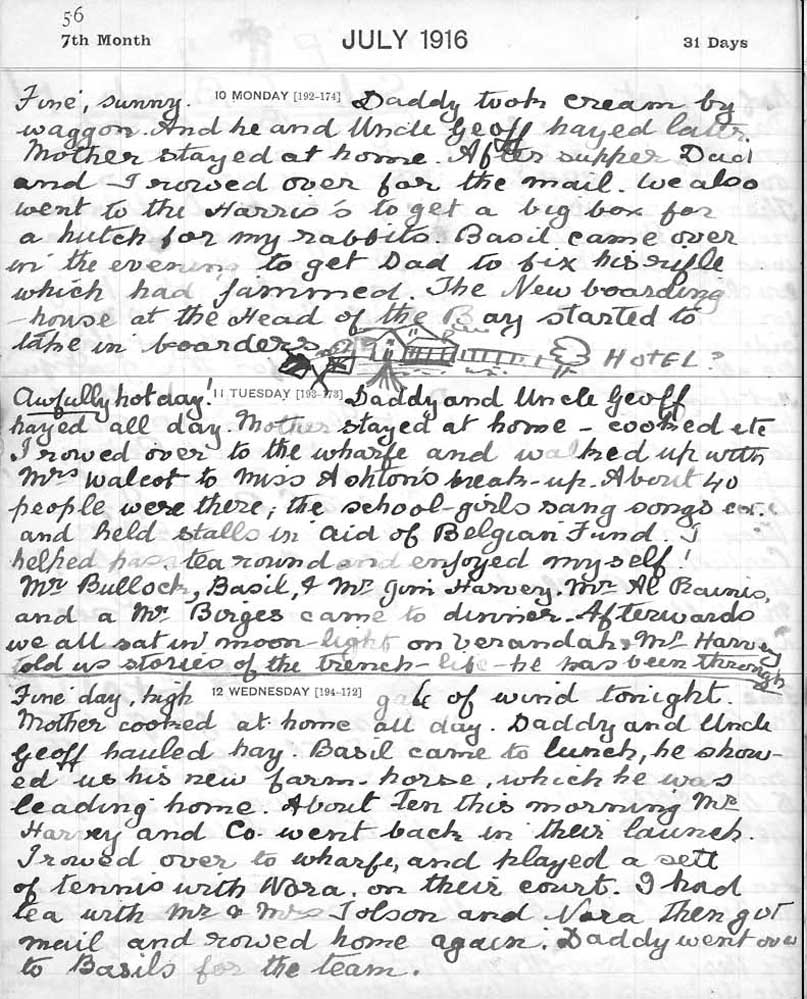 56
7th Month JULY 1916 31 Days
Fine, sunny. 10 MONDAY [192-174] Daddy took cream by
waggon. And he and Uncle Geoff hayed later.
Mother stayed at home. After supper Dad
and I rowed over for the mail. We also
went to the Harris's to get a big box for
a hutch for my rabbits. Basil came over
in the evening to get Dad to fix his rifle
which had jammed. The New boarding
-house at the Head of the Bay started to
take in boarders. HOTEL?
Awfully hot day! 11 TUESDAY [193-173] Daddy and Uncle Geoff
hayed all day. Mother stayed at home - cooked etc
I rowed over to the wharfe and walked up with
Mrs Walcot to Miss Ashton's break-up. About 40
people were there; the school-girls sang songs
and held stalls in aid of Belgian Fund. I
helped pass tea round and enjoyed myself!
Mr Bullock, Basil, & Mr Jim Harvey. Mr Al Rainis,
and a Mr Birges came to dinner. Afterwards
we all sat in moon-light on verandah, Mr Harvey
told us stories of the trench-life-he has been through
Fine day, high 12 WEDNESDAY [194-172] gale of wind tonight.
Mother cooked at home all day. Daddy and Uncle
Geoff hauled hay. Basil came to lunch, he show-
ed us his new farm-horse, which he was
leading home. About Ten this morning Mr
Harvey and Co. went back in their launch.
I rowed over to wharfe, and played a sett
of tennis with Nora. on their court. I had
tea with Mr & Mrs Tolson and Nora Then got
mail and rowed home again. Daddy went over
to Basils for the team.